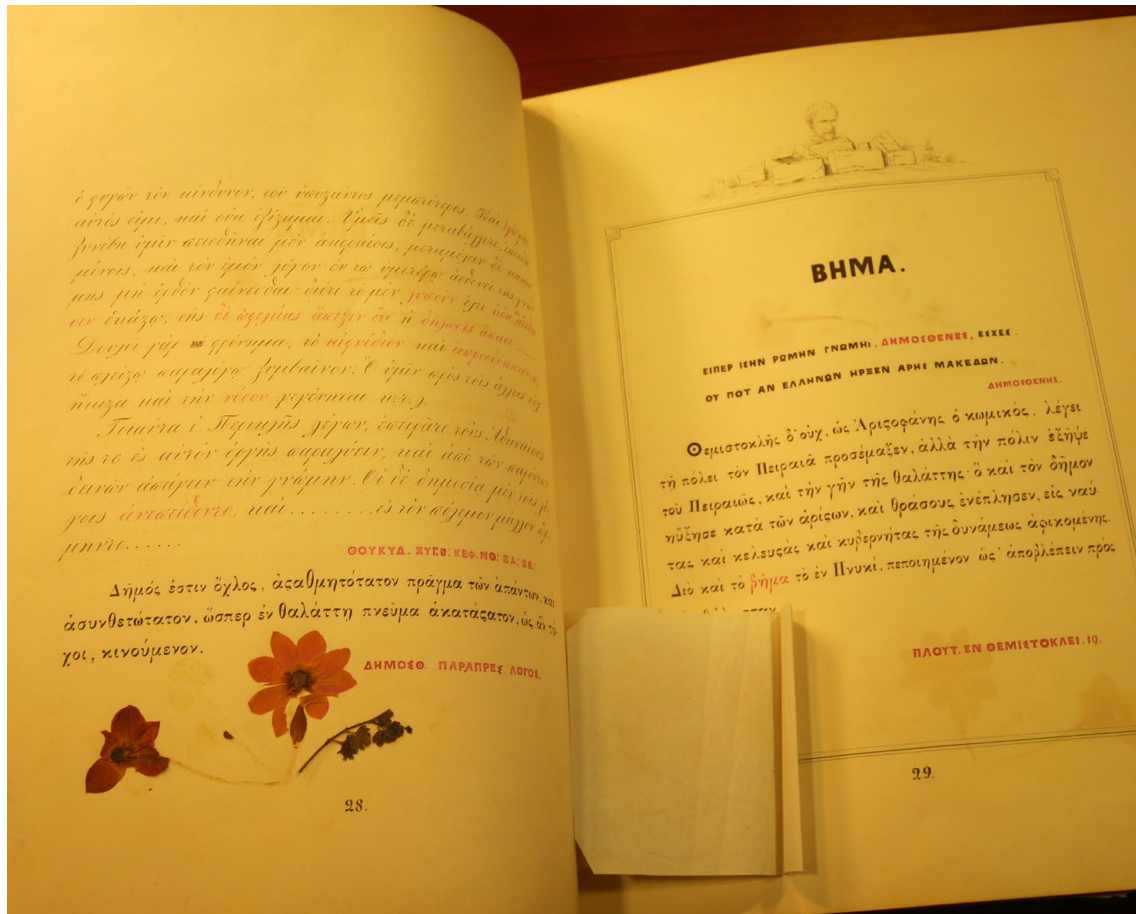 ὁ φυγὼν τὸν κίνδυνον, τοῦ ὑποςάντος μεμπτότερος. Καὶ ἐγὼ μὲν
αὐτός εἰμι, καὶ οὐκ ἐξίςαμαι. Ὑμεῖς δὲ μεταβάλλετε, ἐπειδὴ
ξυνέβη ὑμῖν πεισθῆναι μὲν ἀκεραίοις, μεταμέλειν δὲ κακου
μένοις, καὶ τὸν ἐμὸν λόγον ἐν τῷ ὑμετέρῳ ἀσθενεῖ τῆς γνώ
μης μὴ ὀρθὸν φαίνεσθαι· διότι τὸ μὲν λυποῦν ἔχει ἤδη
σιν ἑκάςῳ, τῆς δὲ ὠφελείας ἄπεςιν ἔτι ἡ δήλωσις ἅπασι......
Δουλοῖ γὰρ φρόνημα, τὸ αἰφνίδιον καὶ ἀπροσδόκητον,
τὸ πλείςῳ παραλόγῳ ξυμβαῖνον. Ὃ ὑμῖν πρὸς τοῖς ἄλλοις οὐχ
ἥκιςα καὶ τὴν νόσον γεγένηται κ.τ.λ.
Τοιαῦτα ὁ Περικλῆς λέγων, ἐπειρᾶτο τοὺς Ἀθηναίους
τῆς τε ἐς αὐτὸν ὀργῆς παραλύειν, καὶ ἀπὸ τῶν παρόντων
δεινῶν ἀπάγειν τὴν γνώμην. Οἱ δὲ δημοσίᾳ μὲν τοῖς λό
γοις ἀνεπείθοντο, καὶ..........ἐς τὸν πόλεμον μᾶλλον ὥρ
μηντο......
ΘΟΥΚΥΔ. ΞΥΓ.Β: ΚΕΦ. ΝΘ: ΞΑ: ΞΕ:
Δῆμός ἐστιν ὄχλος, ἀςαθμητότατον πρᾶγμα τῶν ἁπάντων, καὶ
ἀσυνθετώτατον, ὥσπερ ἐν θαλάττῃ πνεῦμα ἀκατάςατον, ὡς ἂν τύ
χοι, κινούμενον.
ΔΗΜΟΣΘ. ΠΑΡΑΠΡΕΣ. ΛΟΓΟΣ.
28.
ΒΗΜΑ.
ΕΙΠΕΡ ΙΣΗΝ ΡΩΜΗΝ ΓΝΩΜΗΙ, ΔΗΜΟΣΘΕΝΕΣ, ΕΣΧΕΣ.
ΟΥ ΠΟΤ ΑΝ ΕΛΛΗΝΩΝ ΗΡΞΕΝ ΑΡΗΣ ΜΑΚΕΔΩΝ.
ΔΗΜΟΣΘΕΝΗΣ.
Θεμιστοκλῆς δ' οὐχ, ὡς Ἀριςοφάνης ὁ κωμικὸς, λέγει
τῇ πόλει τὸν Πειραιᾶ προσέμαξεν, ἀλλὰ τὴν πόλιν ἐξῆψε
τοῦ Πειραιῶς, καὶ τὴν γῆν τῆς θαλάττης· ὃ καὶ τὸν δῆμον
ηὔξησε κατὰ τῶν ἀρίςων, καὶ θράσους ἐνέπλησεν, εἰς ναύ
τας καὶ κελευςὰς καὶ κυβερνήτας τῆς δυνάμεως ἀφικομένης.
Διὸ καὶ τὸ βῆμα τὸ ἐν Πνυκί, πεποιημένον ὡς' ἀποβλέπειν πρὸς
ΠΛΟΥΤ. ΕΝ ΘΕΜΙΣΤΟΚΛΕΙ. 19.
29.